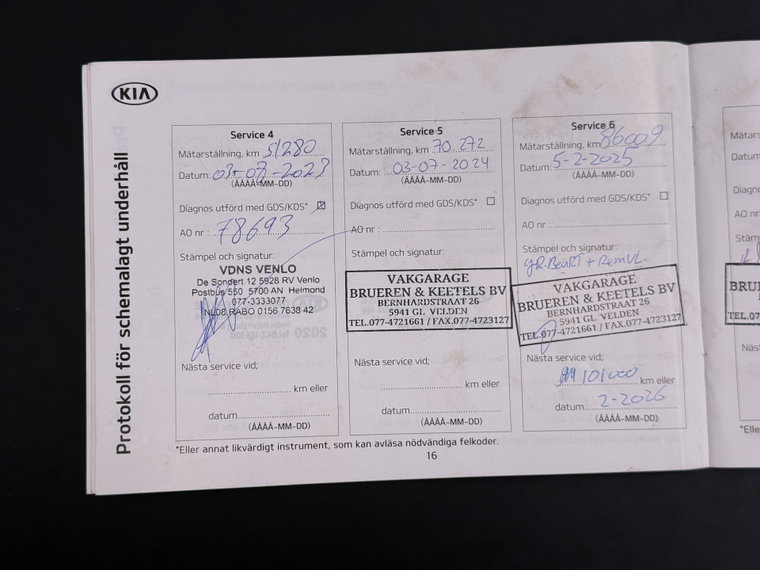 KIA
Protokoll för schemalagt underhåll
Service 4
Mätarställning, km 51280
Datum: 03-07-2023
(ÅÅÅÅ-MM-DD)
Diagnos utförd med GDS/KDS*
AO nr : 78693
Stämpel och signatur:
VDNS VENLO
De Sondert 12 5928 RV Venlo
Postbus 550 5700 AN Helmond
077-3333077
NL08 RABO 0156 7638 42
Nästa service vid;
km eller
datum
(ÅÅÅÅ-MM-DD)
Service 5
Mätarställning, km 70.272
Datum: 03-07-2024
(ÅÅÅÅ-MM-DD)
Diagnos utförd med GDS/KDS*
AO nr :
Stämpel och signatur:
VAKGARAGE
BRUEREN & KEETELS BV
BERNHARDSTRAAT 26
5941 GL VELDEN
TEL.077-4721661 / FAX.077-4723127
Nästa service vid;
km eller
datum
(ÅÅÅÅ-MM-DD)
Service 6
Mätarställning, km 86009
Datum: 5-2-2025
(ÅÅÅÅ-MM-DD)
Diagnos utförd med GDS/KDS*
AO nr :
Stämpel och signatur:
gR. BeuRT + RemVL.
VAKGARAGE
BRUEREN & KEETELS BV
BERNHARDSTRAAT 26
5941 GL VELDEN
TEL.077-4721661 / FAX.077-4723127
Nästa service vid;
101000 km eller
datum 2-2026
(ÅÅÅÅ-MM-DD)
*Eller annat likvärdigt instrument, som kan avläsa nödvändiga felkoder.
16